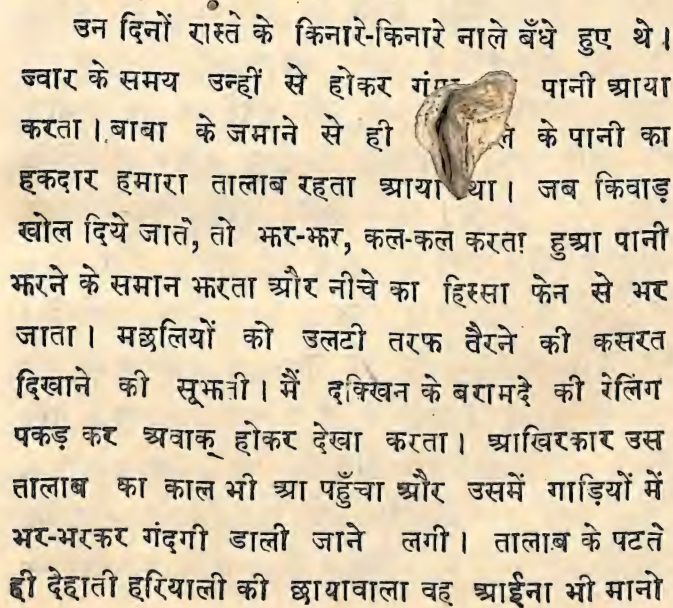 उन दिनों रास्ते के किनारे-किनारे नाले बँधे हुए थे।
ज्वार के समय उन्हीं से होकर पानी आया
करता। बाबा के जमाने से ही के पानी का
हकदार हमारा तालाब रहता आया था। जब किवाड़
खोल दिये जाते, तो झर-झर, कल-कल करता हुआ पानी
झरने के समान झरता और नीचे का हिस्सा फेन से भर
जाता। मछलियों को उलटी तरफ तैरने की कसरत
दिखाने की सूझती। मैं दक्खिन के बरामदे की रेलिंग
पकड़ कर अवाक् होकर देखा करता। आखिरकार उस
तालाब का काल भी आ पहुँचा और उसमें गाड़ियों में
भर-भरकर गंदगी डाली जाने लगी। तालाब के पटते
ही देहाती हरियाली की छायावाला वह आईना भी मानो